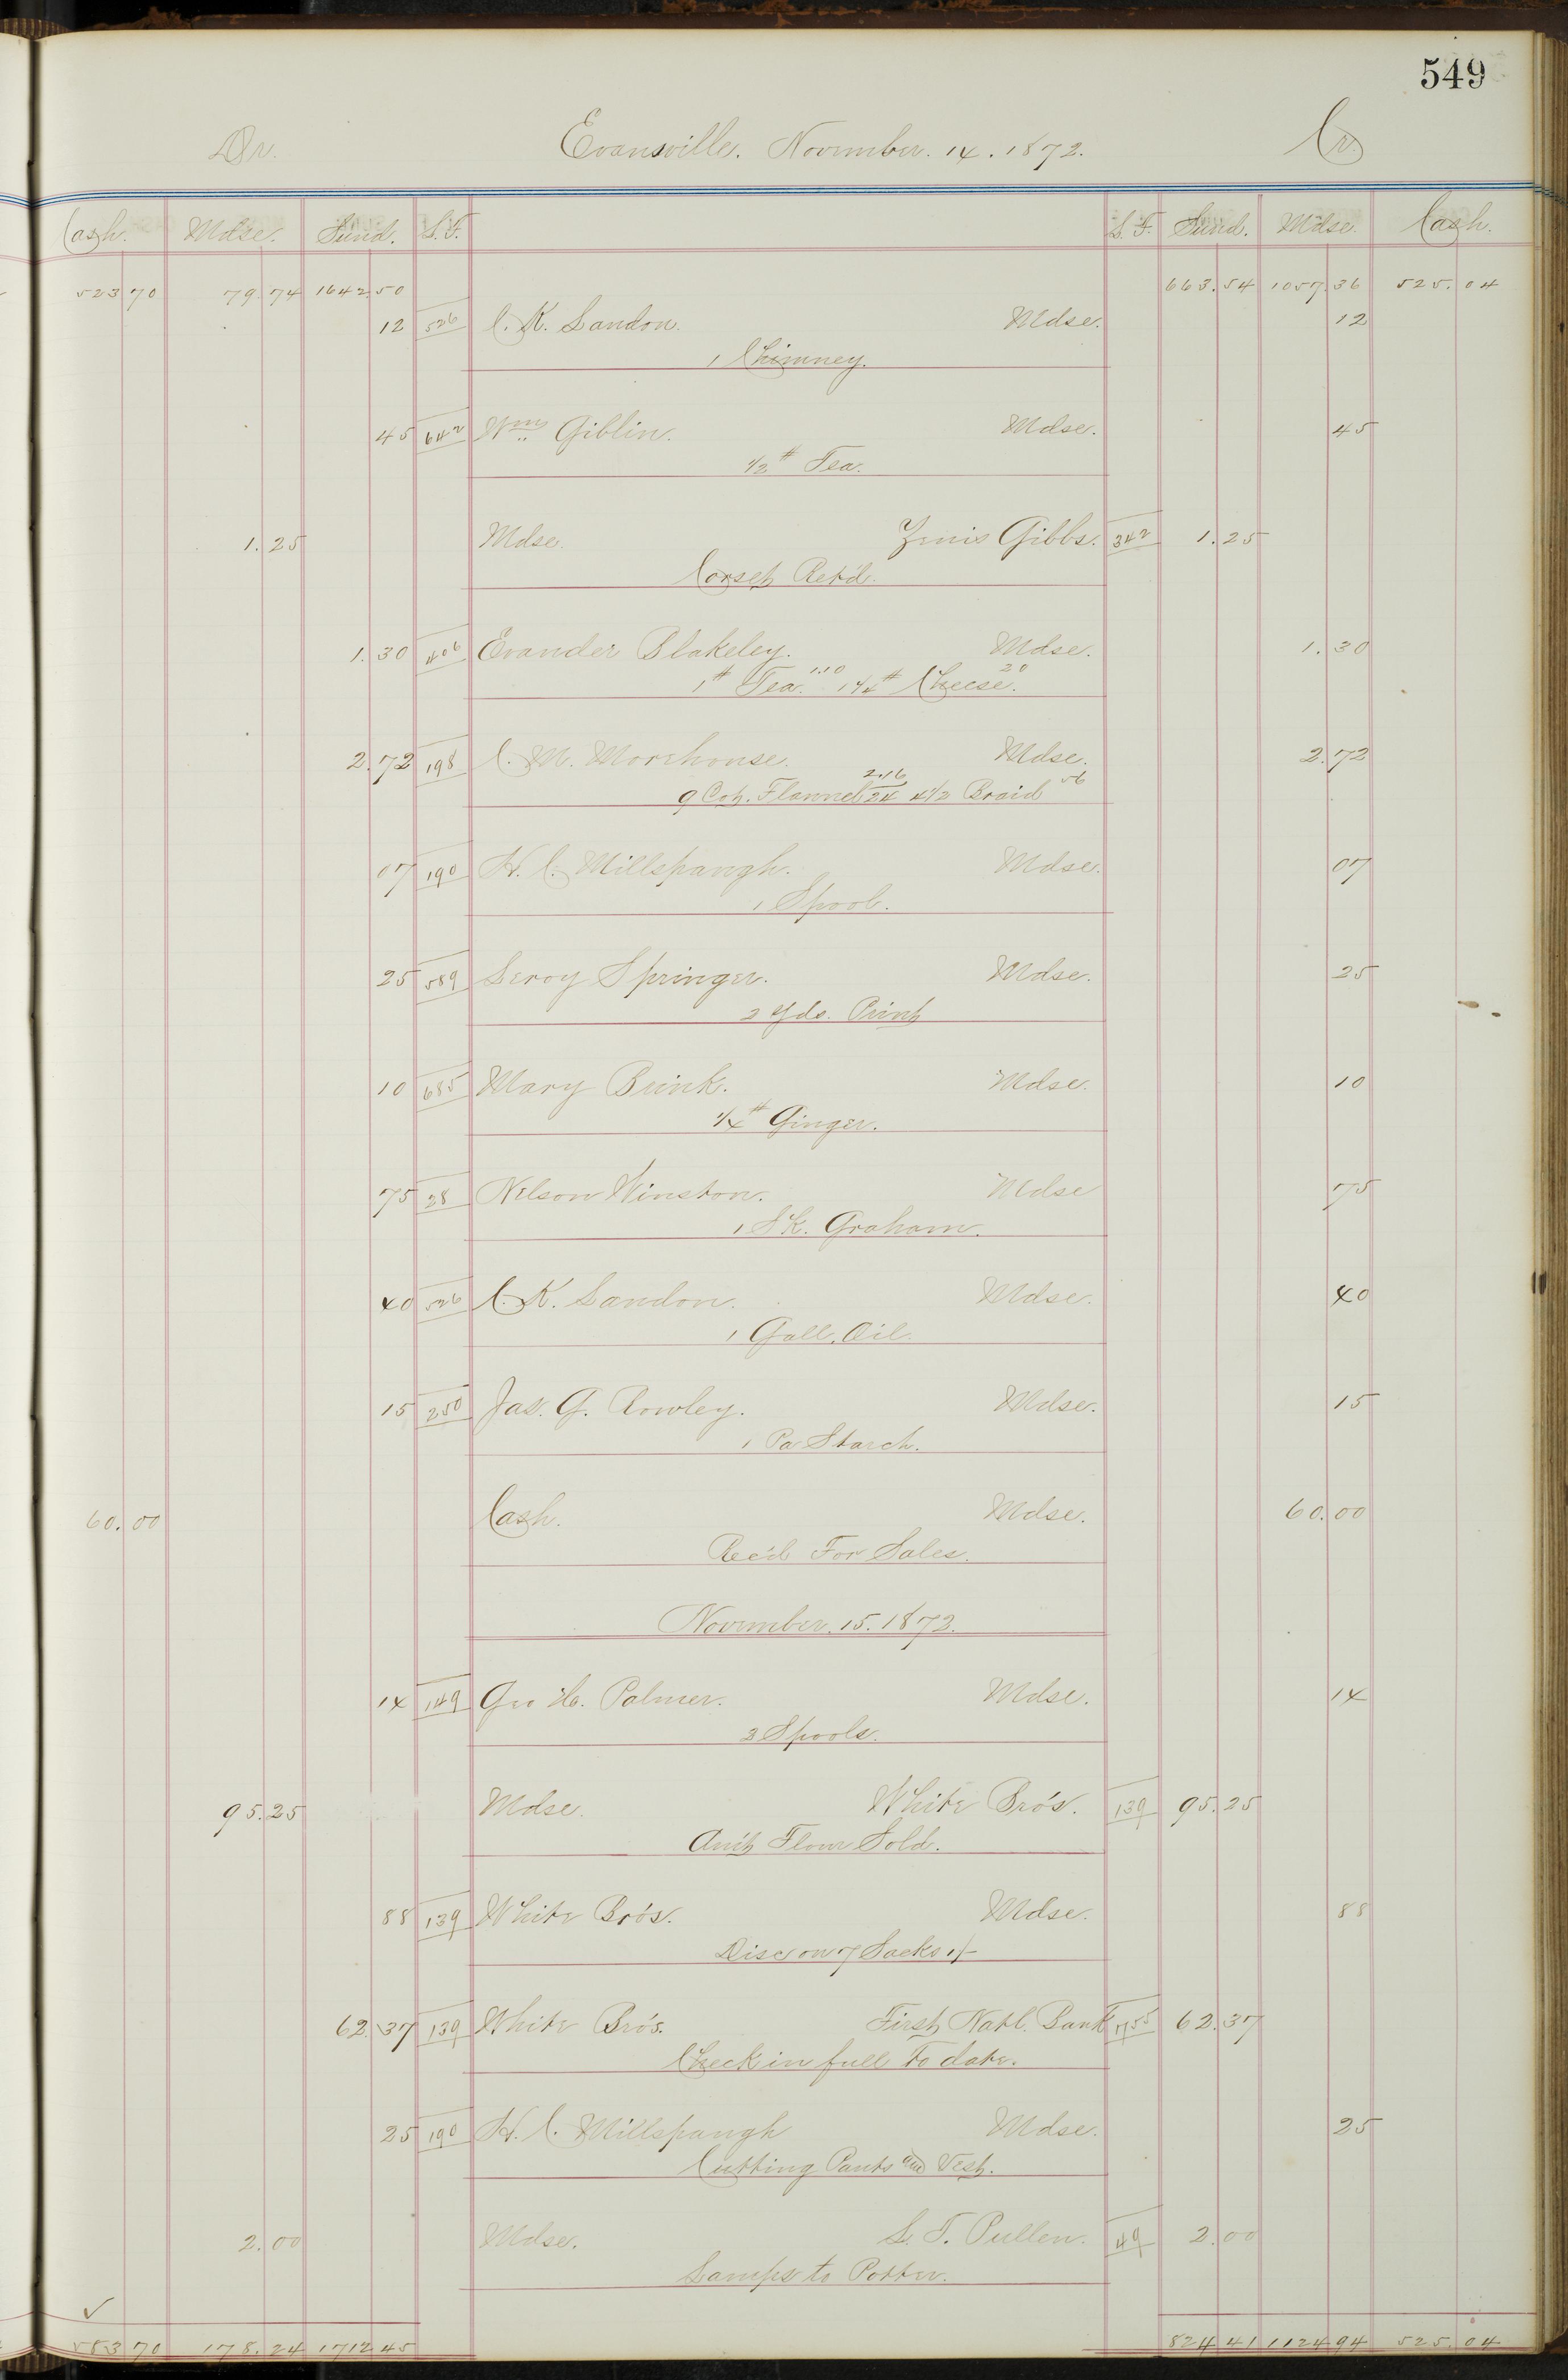 549
Dr. Evansville. November. 14. 1872. Cr
Cash. Mdse. Sund. L.F. L.F. Sund. Mdse. Cash.
523 70 79.74 1642.50 663.54 1057.36 525.04
12 526 C. K. Landon. Mdse. 12
1 Chimney.
45 642 Wm. Giblin. Mdse. 45
1/2 # Tea.
1.25 Mdse. Zenis Gibbs. 342 1.25
Corset Ret'd.
1.30 406 Evander Blakeley. Mdse. 1.30
1 # Tea. 1.10 1 1/4 # Cheese. 20
2.72 198 C. M. Morehouse. Mdse. 2.72
9 Cot. Flannel 2.16 24 4 1/2 Braid 56
07 190 H. C. Millspaugh. Mdse. 07
1 Spool.
25 589 Leroy Springer. Mdse. 25
2 Yds. Print
10 685 Mary Brink. Mdse. 10
1/4 # Ginger.
75 28 Nelson Winston. Mdse 75
1 Sk. Graham.
40 526 C. K. Landon. Mdse. 40
1 Gall. Oil.
15 250 Jas. G. Rowley. Mdse. 15
1 Pa Starch.
60.00 Cash. Mdse. 60.00
Rec'd For Sales.
November. 15. 1872.
14 149 Geo H. Palmer. Mdse. 14
2 Spools.
95.25 Mdse. White Bro's. 139 95.25
Am't Flour Sold.
88 139 White Bro's. Mdse. 88
Disc on 7 Sacks 1/-
62.37 139 White Bro's. First Natl. Bank 755 62.37
Check in full To date.
25 190 H. C. Millspaugh Mdse. 25
Cutting Pants and Vest.
2.00 Mdse. L. T. Pullen. 49 2.00
Lamps to Potter.
✓
583 70 178.24 1712 45 824 41 1124 94 525.04